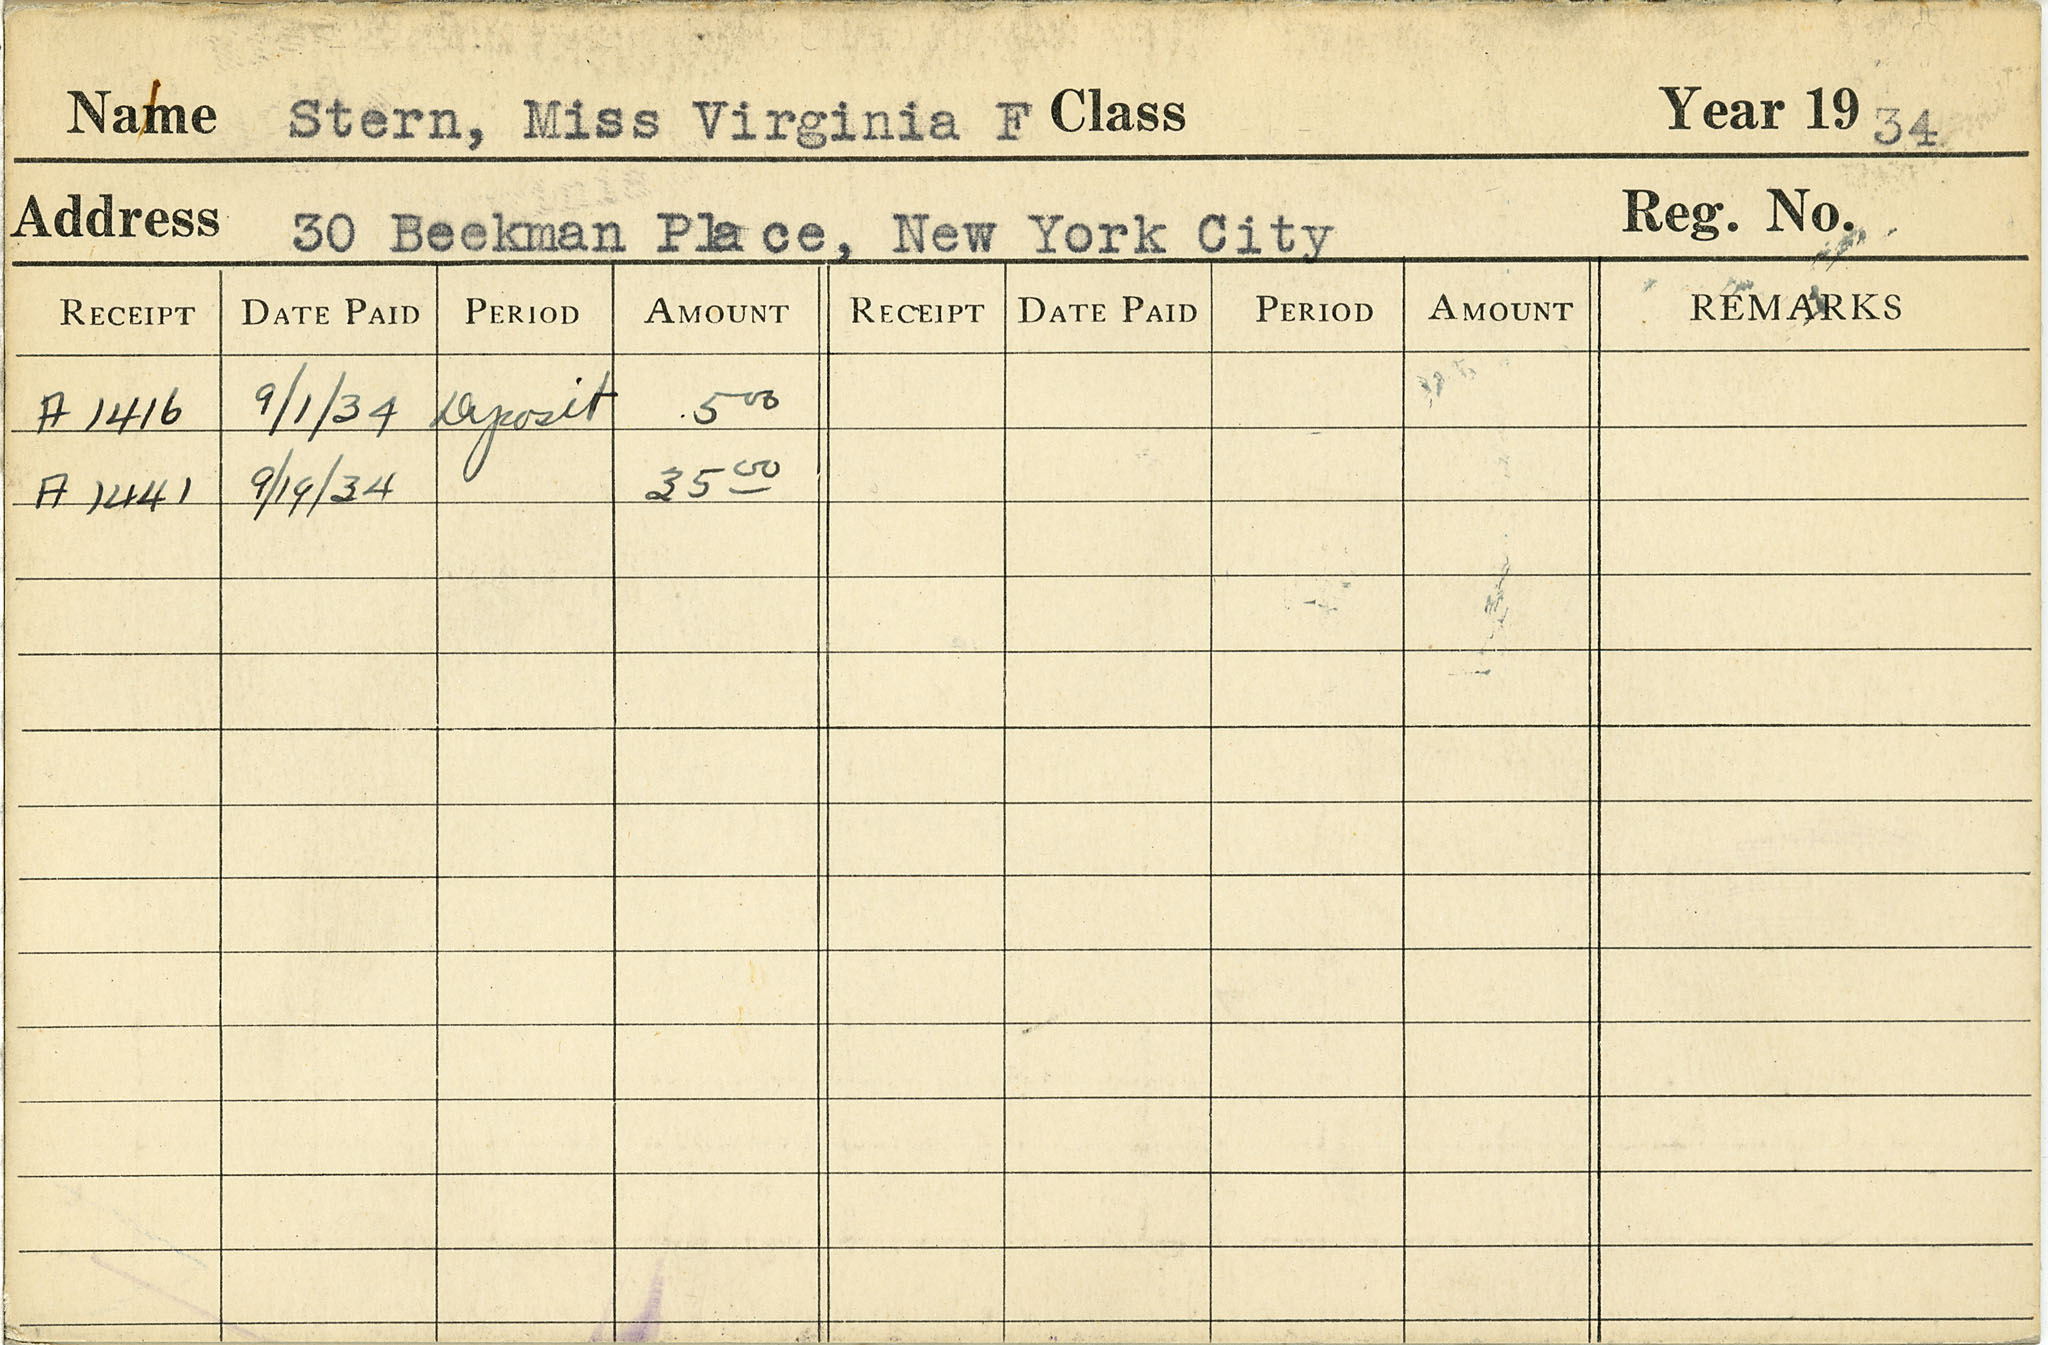 Name Stern, Miss Virginia F Class Year 1934
Address 30 Beekman Place, New York City Reg. No.
RECEIPT DATE PAID PERIOD AMOUNT RECEIPT DATE PAID PERIOD AMOUNT REMARKS
A 1416 9/1/34 Deposit 5 00
A 1441 9/19/34 35 00